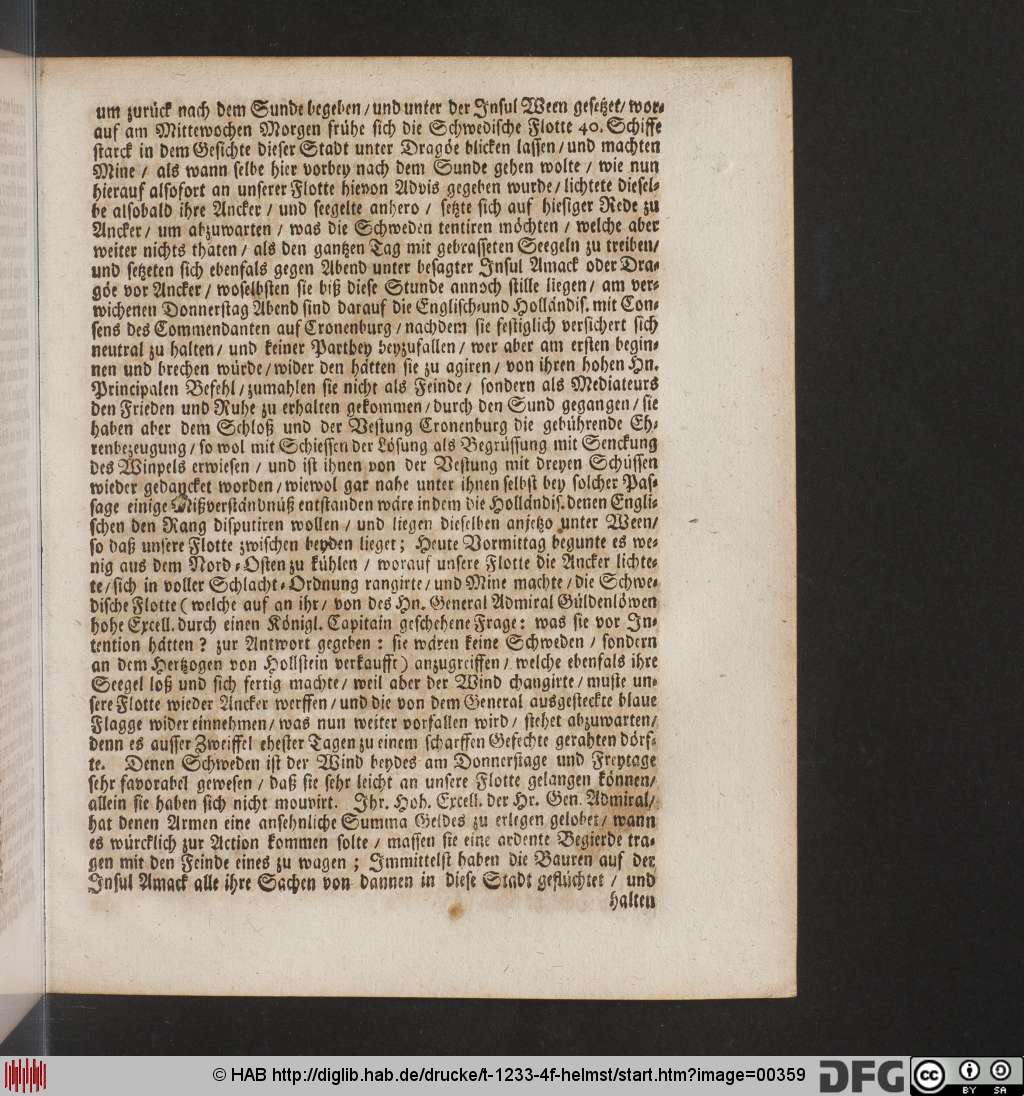 um zurück nach dem Sunde begeben / und unter der Insul Ween gesetzet / wor-
auf am Mittewochen Morgen frühe sich die Schwedische Flotte 40. Schiffe
starck in dem Gesichte dieser Stadt unter Dragöe blicken lassen / und machten
Mine / als wann selbe hier vorbey nach dem Sunde gehen wolte / wie nun
hierauf alsofort an unserer Flotte hievon Advis gegeben wurde / lichtete diesel-
be alsobald ihre Ancker / und seegelte anhero / setzte sich auf hiesiger Rede zu
Ancker / um abzuwarten / was die Schweden tentiren möchten / welche aber
weiter nichts thäten / als den gantzen Tag mit gebrasseten Seegeln zu treiben /
und setzeten sich ebenfals gegen Abend unter besagter Insul Amack oder Dra-
göe vor Ancker / woselbsten sie biß diese Stunde annoch stille liegen / am ver-
wichenen Donnerstag Abend sind darauf die Englisch-und Holländis. mit Con-
sens des Commendanten auf Cronenburg / nachdem sie festiglich versichert sich
neutral zu halten / und keiner Parthey beyzufallen / wer aber am ersten begin-
nen und brechen würde / wider den hätten sie zu agiren / von ihren hohen Hn.
Principalen Befehl / zumahlen sie nicht als Feinde / sondern als Mediateurs
den Frieden und Ruhe zu erhalten gekommen / durch den Sund gegangen / sie
haben aber dem Schloß und der Vestung Cronenburg die gebührende Eh-
renbezeugung / so wol mit Schiessen der Lösung als Begrüssung mit Senckung
des Winpels erwiesen / und ist ihnen von der Vestung mit dreyen Schüssen
wieder gedancket worden / wiewol gar nahe unter ihnen selbst bey solcher Pas-
sage einige Mißverständnüß entstanden wäre indem die Holländis. denen Engli-
schen den Rang disputiren wollen / und liegen dieselben anjetzo unter Ween /
so daß unsere Flotte zwischen beyden lieget ; Heute Vormittag begunte es we-
nig aus dem Nord-Osten zu kühlen / worauf unsere Flotte die Ancker lichte-
te / sich in voller Schlacht-Ordnung rangirte / und Mine machte / die Schwe-
dische Flotte ( welche auf an ihr / von des Hn. General Admiral Güldenlöwen
hohe Excell. durch einen Königl. Capitain geschehene Frage : was sie vor In-
tention hätten ? zur Antwort gegeben : sie wären keine Schweden / sondern
an dem Hertzogen von Hollstein verkaufft ) anzugreiffen / welche ebenfals ihre
Seegel loß und sich fertig machte / weil aber der Wind changirte / muste un-
sere Flotte wieder Ancker werffen / und die von dem General ausgesteckte blaue
Flagge wider einnehmen / was nun weiter vorfallen wird / stehet abzuwarten /
denn es ausser Zweiffel ehester Tagen zu einem scharffen Gefechte gerahten dörf-
te. Denen Schweden ist der Wind beydes am Donnerstage und Freytage
sehr favorabel gewesen / daß sie sehr leicht an unsere Flotte gelangen können /
allein sie haben sich nicht mouvirt. Ihr. Hoh. Excell. der Hr. Gen. Admiral /
hat denen Armen eine ansehnliche Summa Geldes zu erlegen gelobet / wann
es würcklich zur Action kommen solte / massen sie eine ardente Begierde tra-
gen mit den Feinde eines zu wagen ; Immittelst haben die Bauren auf der
Insul Amack alle ihre Sachen von dannen in diese Stadt geflüchtet / und
halten
© HAB http://diglib.hab.de/drucke/t-1233-4f-helmst/start.htm?image=00359
DFG
cc BY SA